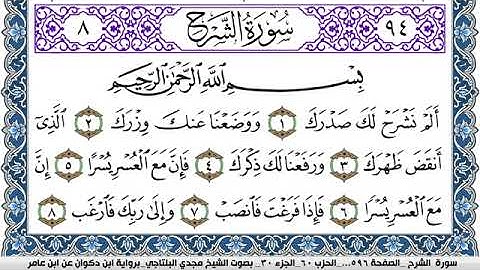 ٩٤ سُورَةُ الشَّرۡحِ ٨
بِسۡمِ ٱللَّهِ ٱلرَّحۡمَٰنِ ٱلرَّحِيمِ
أَلَمۡ نَشۡرَحۡ لَكَ صَدۡرَكَ ١ وَوَضَعۡنَا عَنكَ وِزۡرَكَ ٢ ٱلَّذِيٓ
أَنقَضَ ظَهۡرَكَ ٣ وَرَفَعۡنَا لَكَ ذِكۡرَكَ ٤ فَإِنَّ مَعَ ٱلۡعُسۡرِ يُسۡرًا ٥ إِنَّ
مَعَ ٱلۡعُسۡرِ يُسۡرٗا ٦ فَإِذَا فَرَغۡتَ فَٱنصَبۡ ٧ وَإِلَىٰ رَبِّكَ فَٱرۡغَب ٨
سورة الشرح _الصفحة ٥٩٦..._الحزب ٦٠_الجزء ٣٠_ بصوت الشيخ مجدي البلتاجي_برواية ابن ذكوان عن ابن عامر